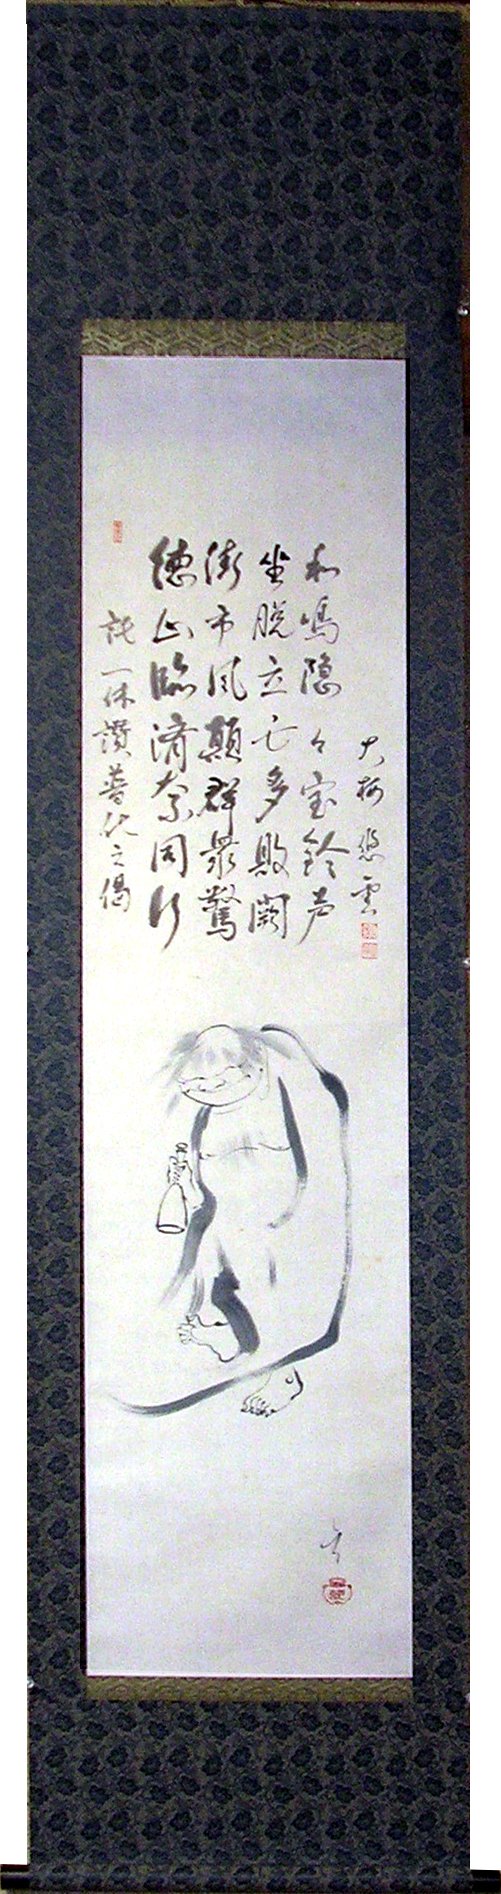 一休讃普化之偈
徳山臨済奈同行
街市風顛群衆驚
坐脱立亡多敗闕
和鳴隠々宝鈴声
大梅悠雲